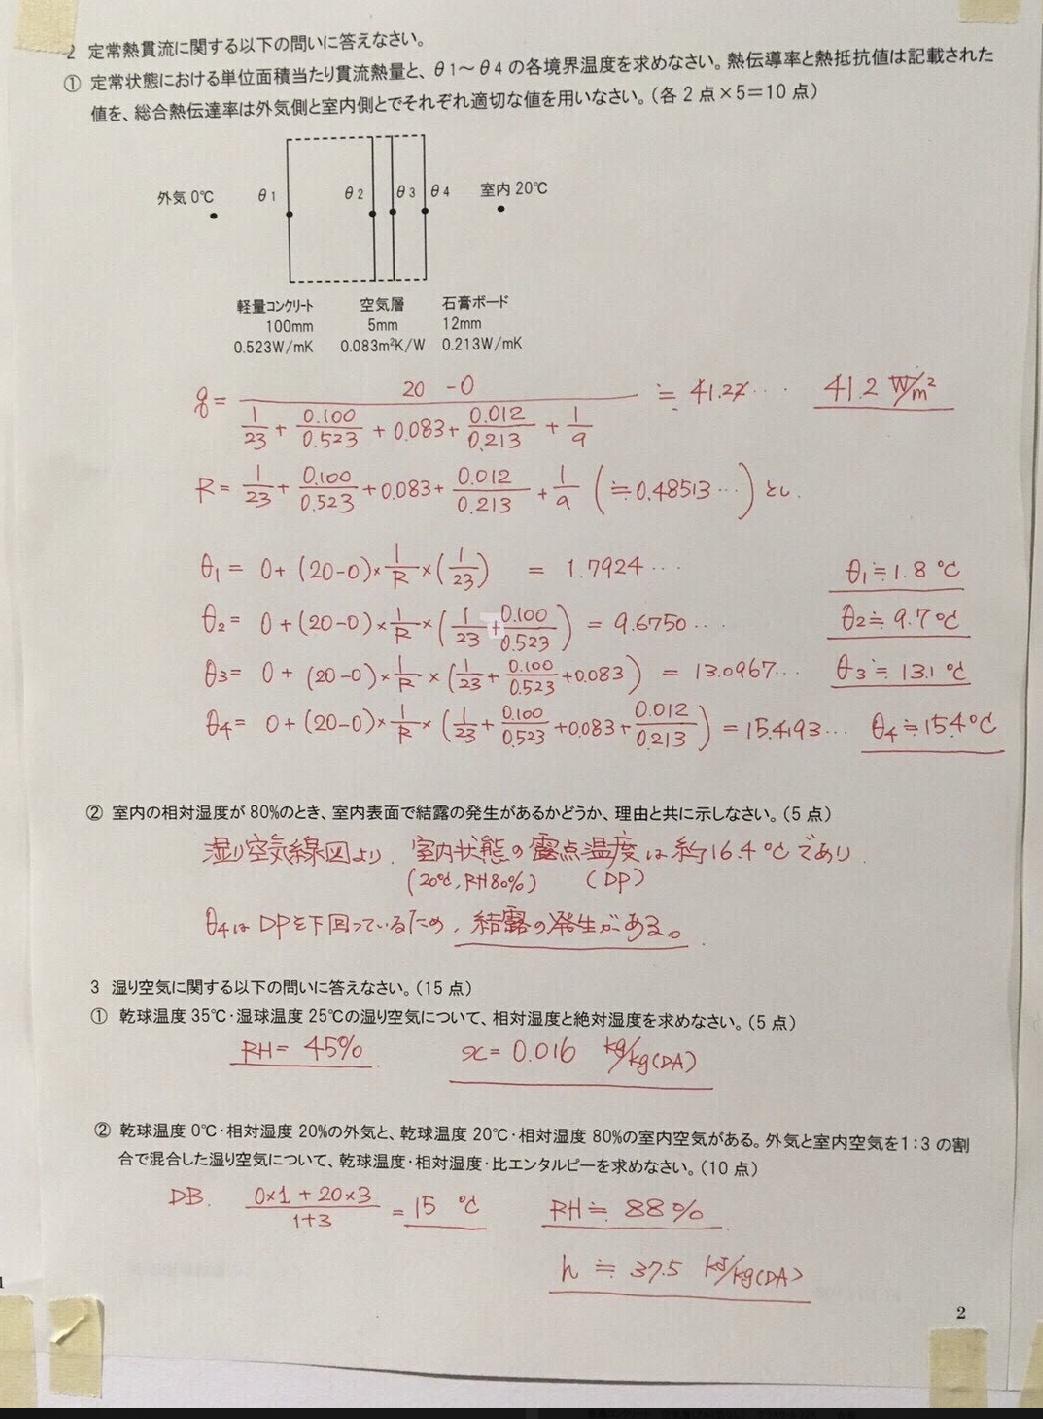 2 定常熱貫流に関する以下の問いに答えなさい。
① 定常状態における単位面積当たり貫流熱量と、θ1～θ4の各境界温度を求めなさい。熱伝導率と熱抵抗値は記載された
値を、総合熱伝達率は外気側と室内側とでそれぞれ適切な値を用いなさい。(各2点×5=10点)
外気 0℃ θ1 θ2 θ3 θ4 室内 20℃
軽量コンクリート 空気層 石膏ボード
100mm 5mm 12mm
0.523W/mK 0.083m²K/W 0.213W/mK
q = (20 - 0) / (1/23 + 0.100/0.523 + 0.083 + 0.012/0.213 + 1/9) ≒ 41.22… 41.2 W/m²
R = 1/23 + 0.100/0.523 + 0.083 + 0.012/0.213 + 1/9 (≒0.48513…) とし.
θ1 = 0 + (20-0) × 1/R × (1/23) = 1.7924… θ1≒1.8℃
θ2 = 0 + (20-0) × 1/R × (1/23 + 0.100/0.523) = 9.6750… θ2≒9.7℃
θ3 = 0 + (20-0) × 1/R × (1/23 + 0.100/0.523 + 0.083) = 13.0967… θ3≒13.1℃
θ4 = 0 + (20-0) × 1/R × (1/23 + 0.100/0.523 + 0.083 + 0.012/0.213) = 15.4193… θ4≒15.4℃
② 室内の相対湿度が80%のとき、室内表面で結露の発生があるかどうか、理由と共に示しなさい。(5点)
湿り空気線図より、室内状態の露点温度は約16.4℃であり、
(20℃, RH80%) (DP)
θ4はDPを下回っているため、結露の発生がある。
3 湿り空気に関する以下の問いに答えなさい。(15点)
① 乾球温度35℃・湿球温度25℃の湿り空気について、相対湿度と絶対湿度を求めなさい。(5点)
RH= 45% x= 0.016 kg/kg(DA)
② 乾球温度0℃・相対湿度20%の外気と、乾球温度20℃・相対湿度80%の室内空気がある。外気と室内空気を1:3の割
合で混合した湿り空気について、乾球温度・相対湿度・比エンタルピーを求めなさい。(10点)
DB. (0×1 + 20×3) / (1+3) = 15 ℃ RH≒ 88%
h ≒ 37.5 kJ/kg(DA)
2